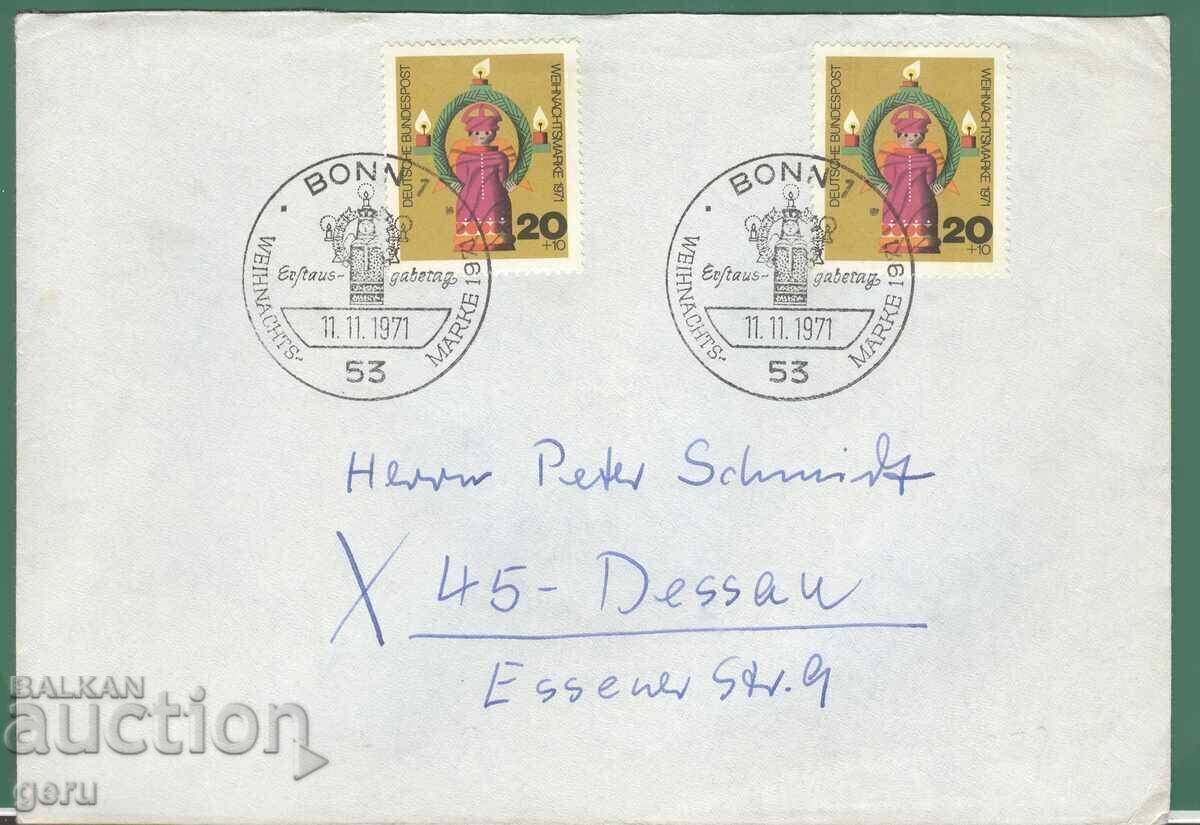 DEUTSCHE BUNDESPOST
WEIHNACHTSMARKE 1971
20
+10
DEUTSCHE BUNDESPOST
WEIHNACHTSMARKE 1971
20
+10
BONN 1
Erstaus- gabetag
11.11.1971
53
WEIHNACHTS- MARKE 1971
BONN 1
Erstaus- gabetag
11.11.1971
53
WEIHNACHTS- MARKE 1971
Herrn Peter Schmidt
X 45- Dessau
Essener Str. 9
BALKAN
auction
geru